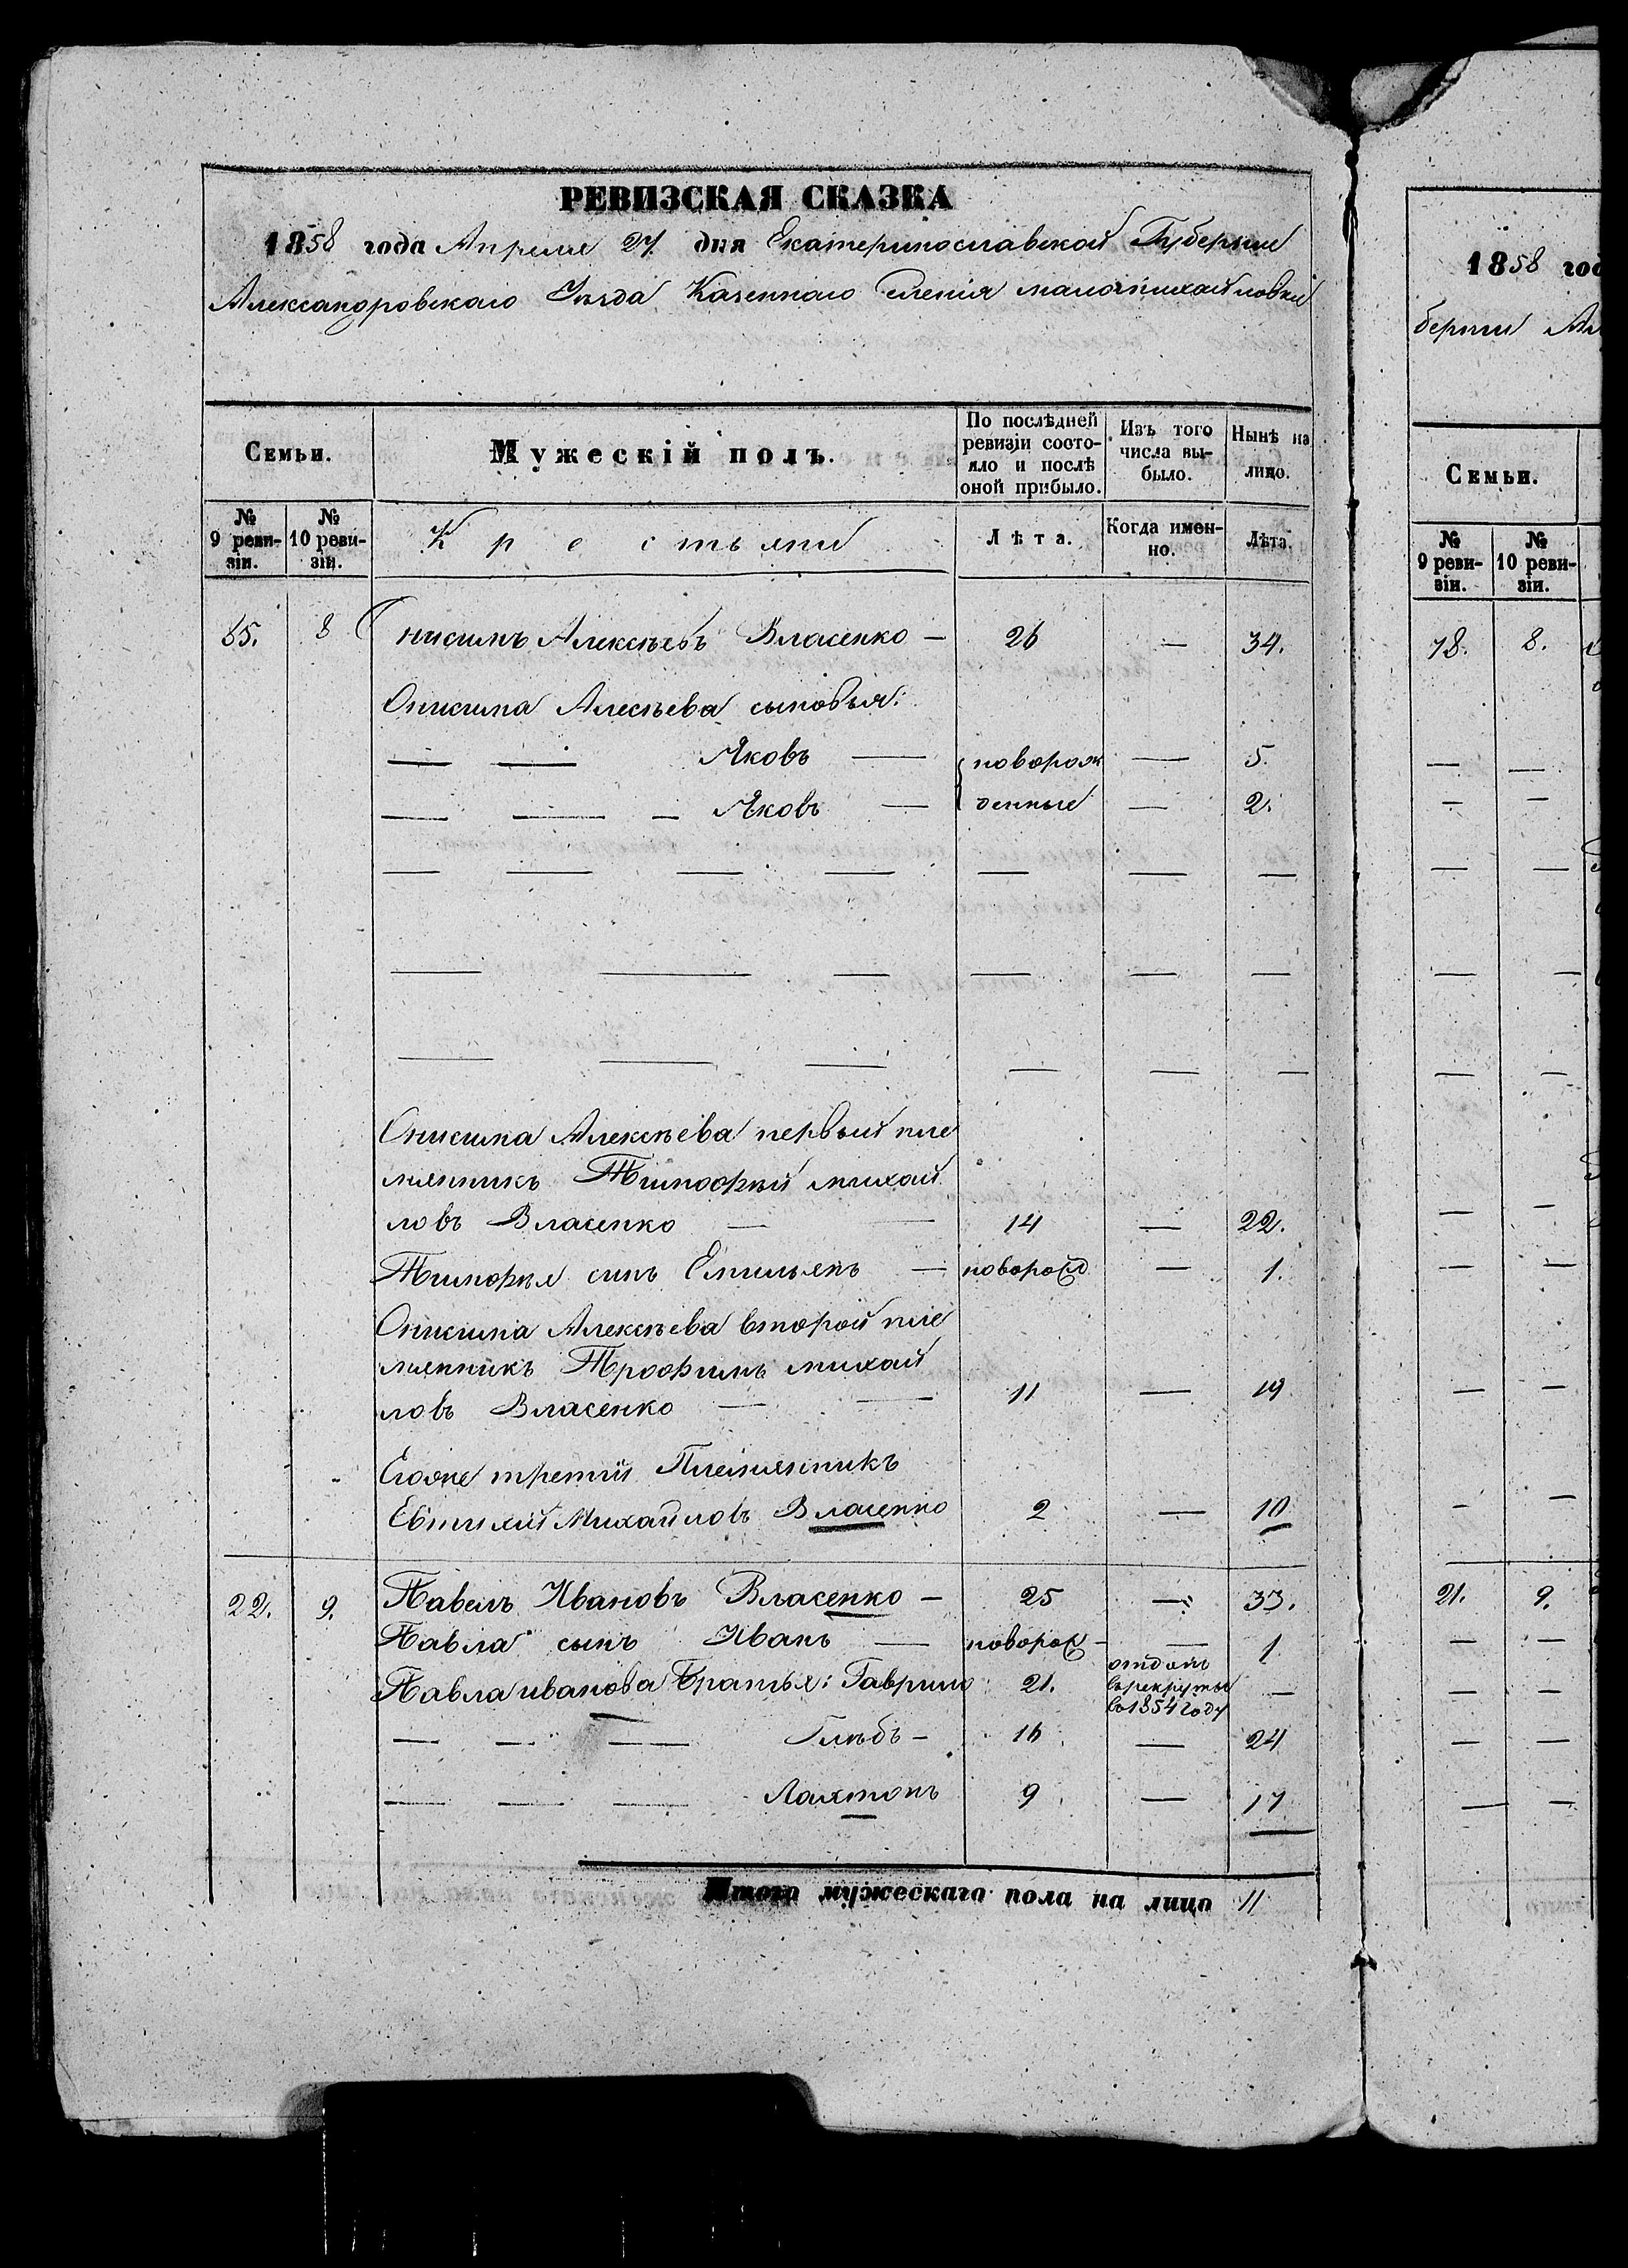 РЕВИЗСКАЯ СКАЗКА
1858 года Апреля 27. дня Екатеринославской Губернии
Александровскаго Уѣзда Казеннаго Селенія маломихайловки
Семьи. Мужескій полъ. По послѣдней ревизіи состояло и послѣ оной прибыло. Изъ того числа выбыло. Нынѣ на лицо.
№ 9 ревизіи. № 10 ревизіи. Крестьяни Лѣта. Когда именно. Лѣта.
8 Онисимъ Алексѣевъ Власенко — 26 — 34.
Онисима Алесѣева сыновья:
— — Яковъ — новорож — 5.
— — — Яковъ — денные — 2.
— — — — — — —
— — — — — —
— — — — — —
Онисима Алексѣева первый пле
мянникъ Тимофѣй михай
ловъ Власенко — — 14 — 22.
Тимофѣя синъ Емильянъ — новорожд — 1.
Онисима Алексѣева второй пле
мянникъ Трофимъ михай
ловъ Власенко — — 11 — 19
Егоже третий Племянникъ
Евтихий Михайловъ Власенко 2 — 10
22. 9. Павелъ Ивановъ Власенко — 25 — 33.
Павла сынъ Иванъ — новорож — — 1
Павла иванова Братья: Гаврило 21. отданъ
въ рекруты —
во 1854 году
— — — Глѣбъ — 16 — 24
— — — Лахтонъ 9 — 17
Итого мужескаго пола на лицо 11
1858 год
берніи Ал
Семьи.
№ 9 ревизіи. № 10 ревизіи.
18. 8.
21. 9.